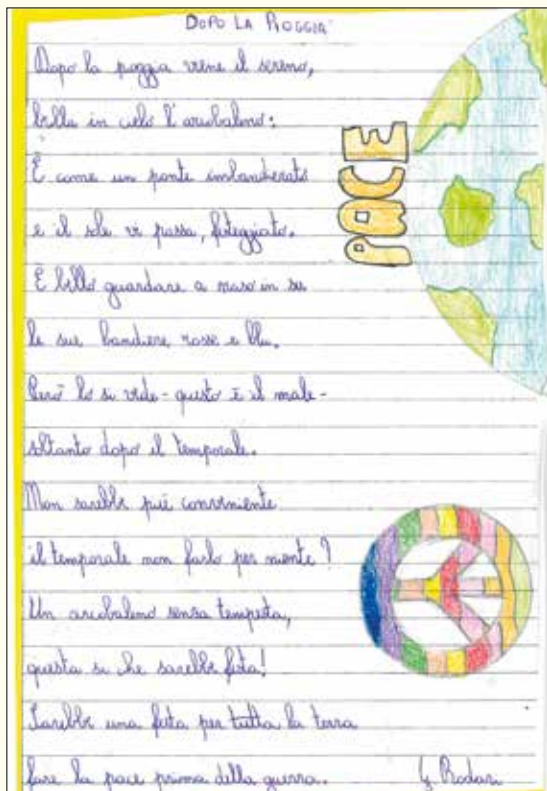 DOPO LA PIOGGIA
Dopo la poggia viene il sereno,
brilla in cielo l'arcobaleno:
È come un ponte imbandierato
e il sole vi passa, festeggiato.
È bello guardare a naso in su
le sue bandiere rosse e blu.
Però lo si vede - questo è il male -
soltanto dopo il temporale.
Non sarebbe più conveniente
il temporale non farlo per niente?
Un arcobaleno senza tempesta,
questa si che sarebbe festa!
Sarebbe una festa per tutta la terra
fare la pace prima della guerra.
G. Rodari
PACE